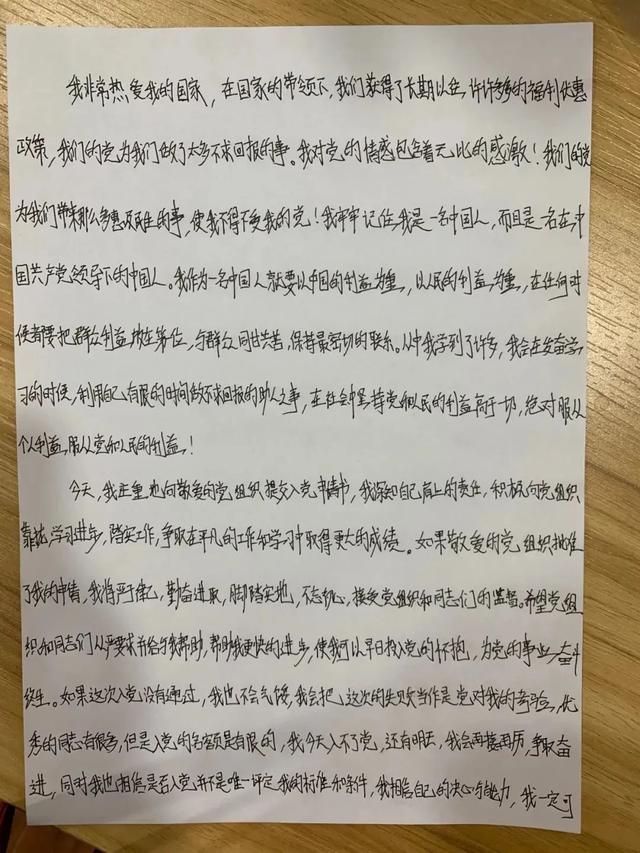 我非常热爱我的国家，在国家的带领下，我们获得了长期以往，许许多多的福利优惠
政策，我们的党为我们做了太多不求回报的事。我对党的情感包含着无比的感激！我们的党
为我们带来那么多惠及民生的事，使我不得不爱我的党！我牢牢记住，我是一名中国人，而且是一名在中
国共产党领导下的中国人。我作为一名中国人就要以中国的利益为重，以人民的利益为重，在任何时
候都要把群众利益放在第一位，与群众同甘共苦，保持最密切的联系。从中我学到了许多，我会在发奋学
习的时候，利用自己有限的时间做不求回报的助人之事，在社会中坚持党和人民的利益高于一切，绝对服从
个人利益服从党和人民的利益！
今天，我庄重地向敬爱的党组织提交入党申请书，我深知自己肩上的责任，积极向党组织
靠拢，学习进步，踏实工作，争取在平凡的工作和学习中取得更大的成绩。如果敬爱的党组织批准
了我的申请，我将严于律己，勤奋进取，脚踏实地，不忘初心，接受党组织和同志们的监督。希望党组
织和同志们从严要求并给与我帮助，帮助我更快的进步，使我可以早日投入党的怀抱，为党的事业奋斗
终生。如果这次入党没有通过，我也不会气馁，我会把这次的失败当作是党对我的考验，优
秀的同志有很多，但是入党的名额是有限的，我今天入不了党，还有明天，我会再接再厉，争取奋
进，同时我也相信是否入党并不是唯一评定我的标准和条件，我相信自己的决心与能力，我一定可